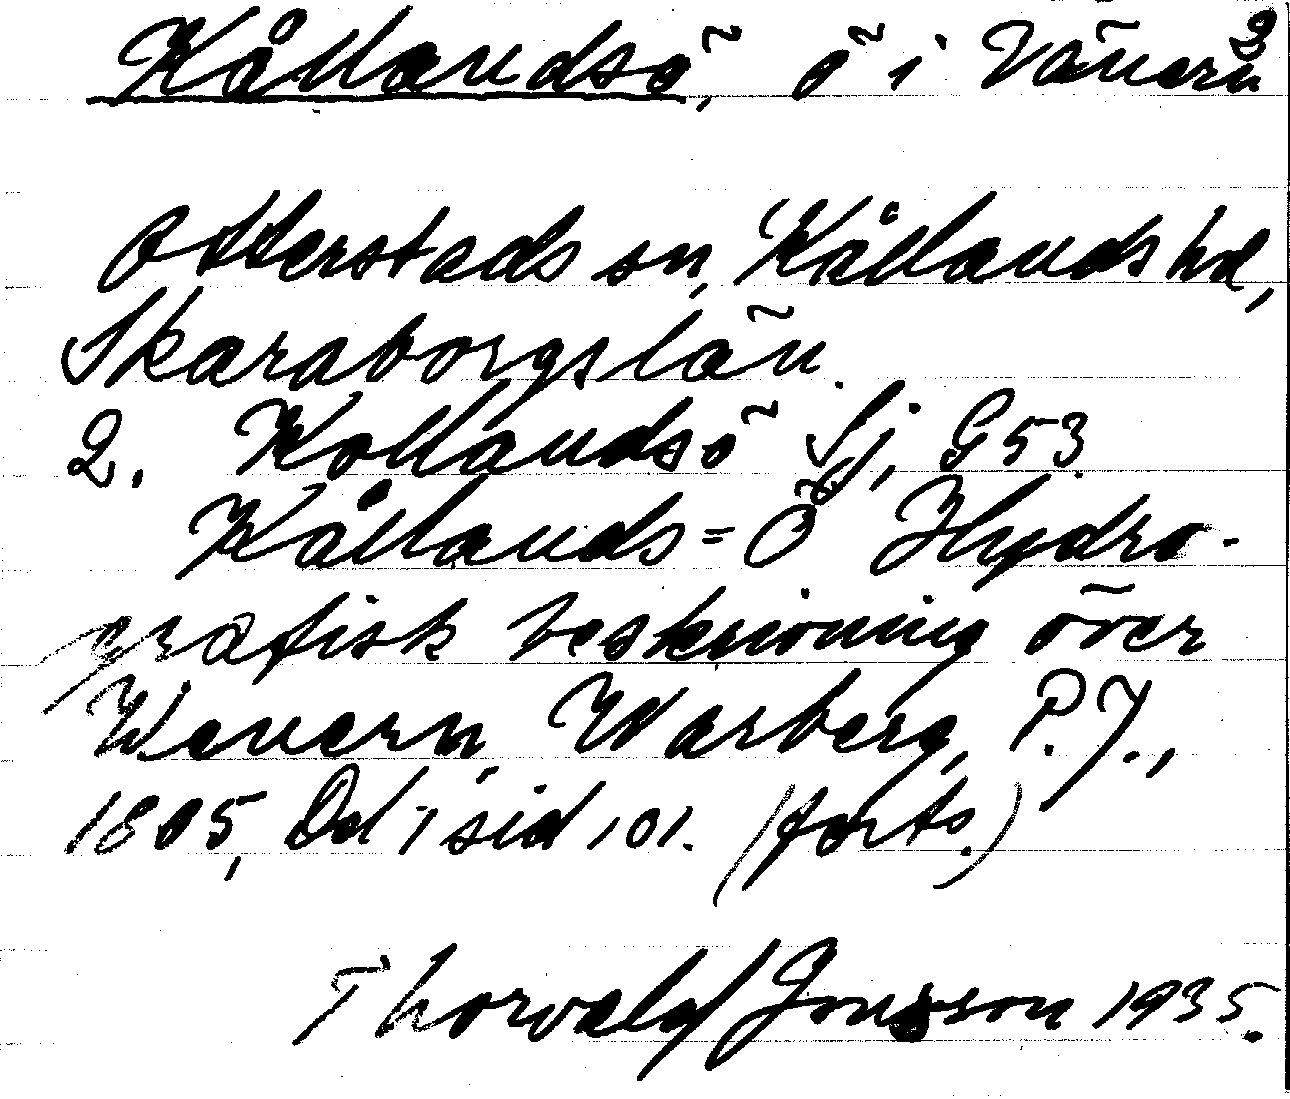 3
Kållandsö, ö i Vänern
Otterstads sn, Kållands hd,
Skaraborgs län.
2. Kollandsö Sj, G53
Kållands=Ö Hydro-
grafisk beskrivning över
Wenern, Warberg, P.J.,
1805, Del 1 sid 101. (forts.)
Thorvald Jonsson 1935.